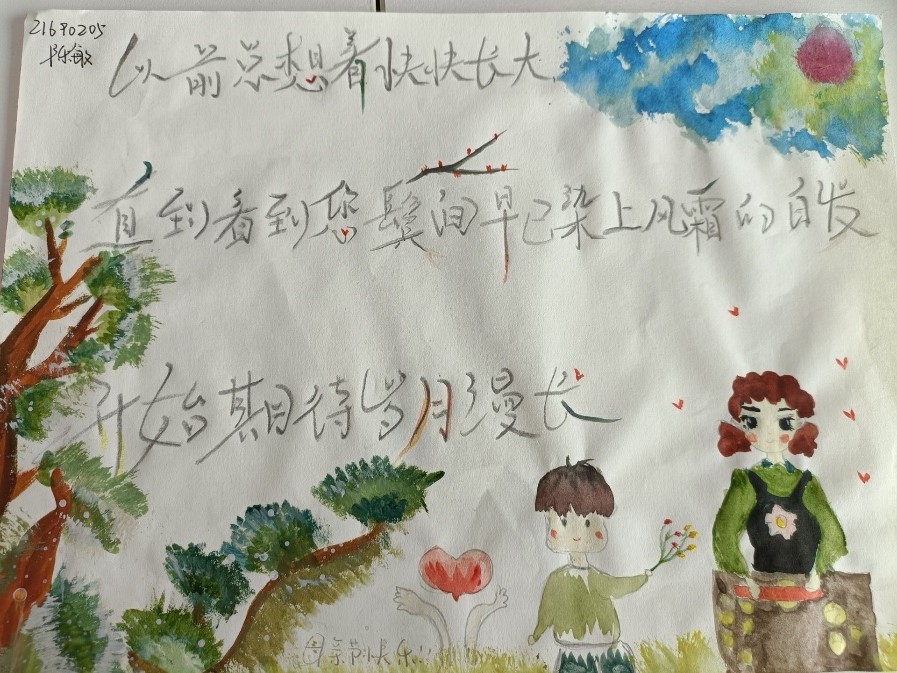 21690205
陈敏
以前总想着快快长大
直到看到您鬓间早已染上风霜的白发
开始期待岁月漫长
母亲节快乐!!